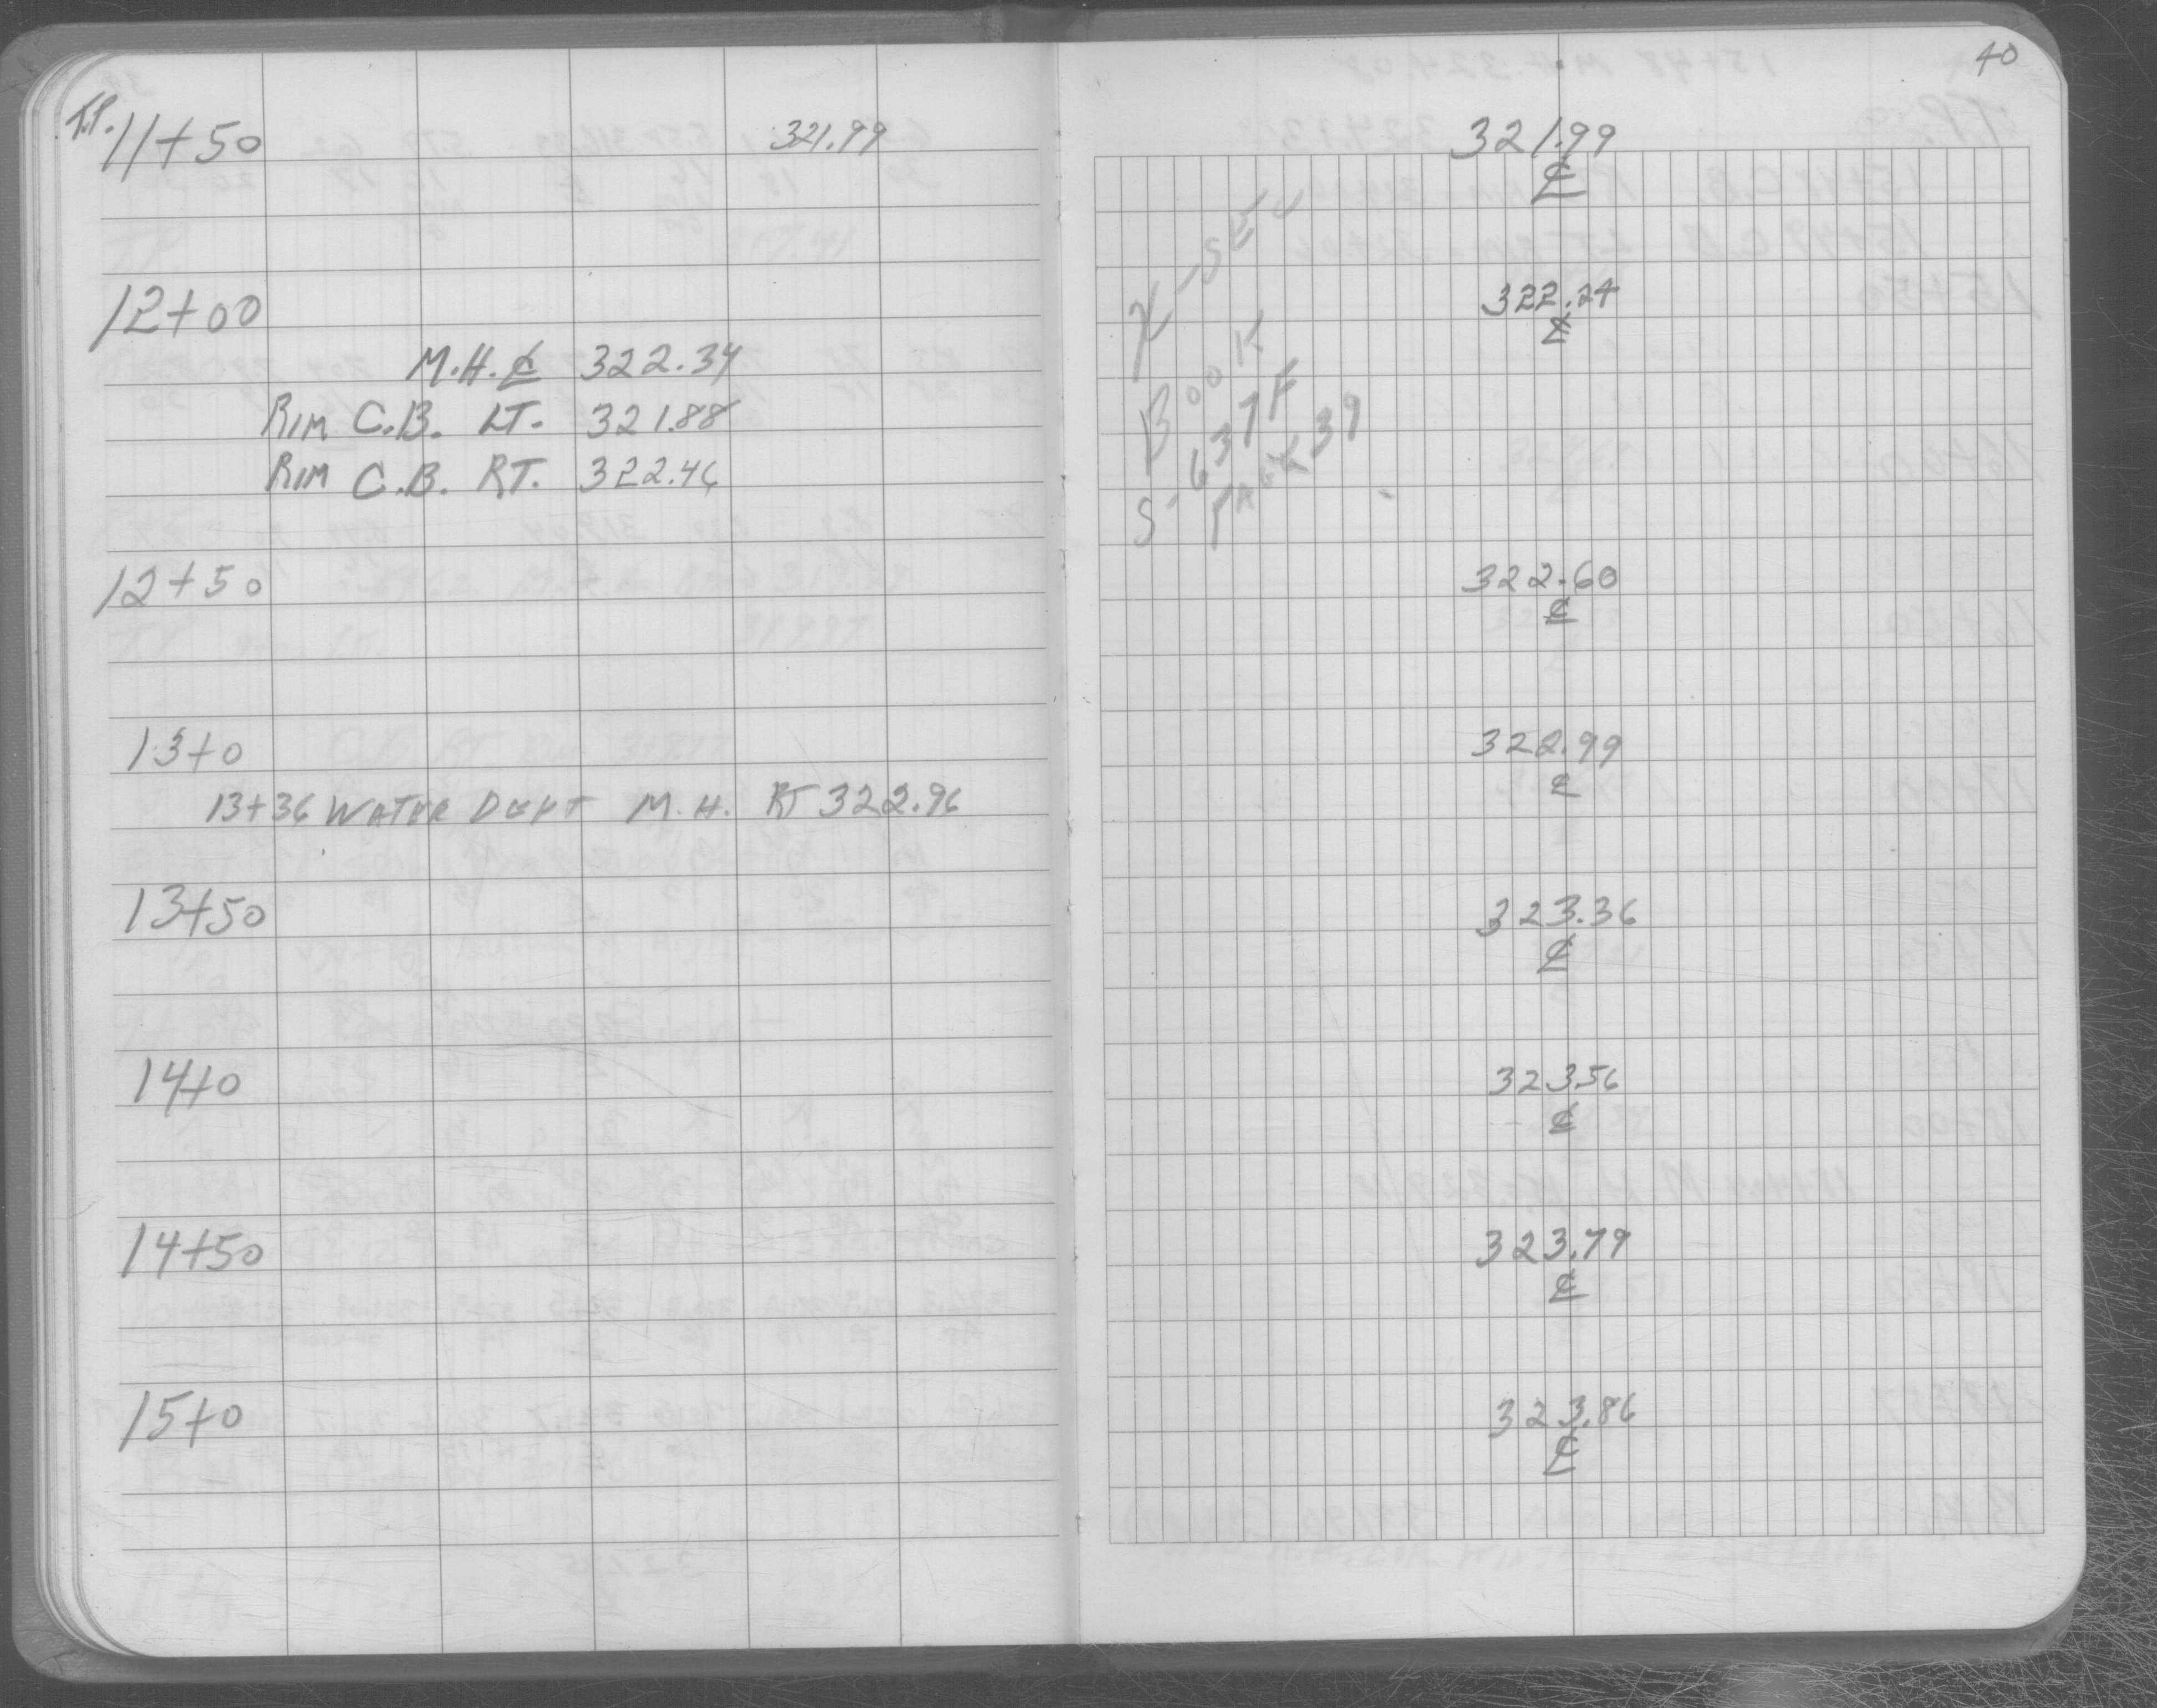 40
T.P. 11+50 321.99 321.99
℄
12+00 322.24
℄
M.H. ℄ 322.34
RIM C.B. LT. 321.88
RIM C.B. RT. 322.46
X-SEC
BOOK
S-637F
PAGE 39
12+50 322.60
℄
13+0 322.99
℄
13+36 WATER DEPT M.H. RT 322.96
13+50 323.36
℄
14+0 323.56
℄
14+50 323.79
℄
15+0 323.86
℄